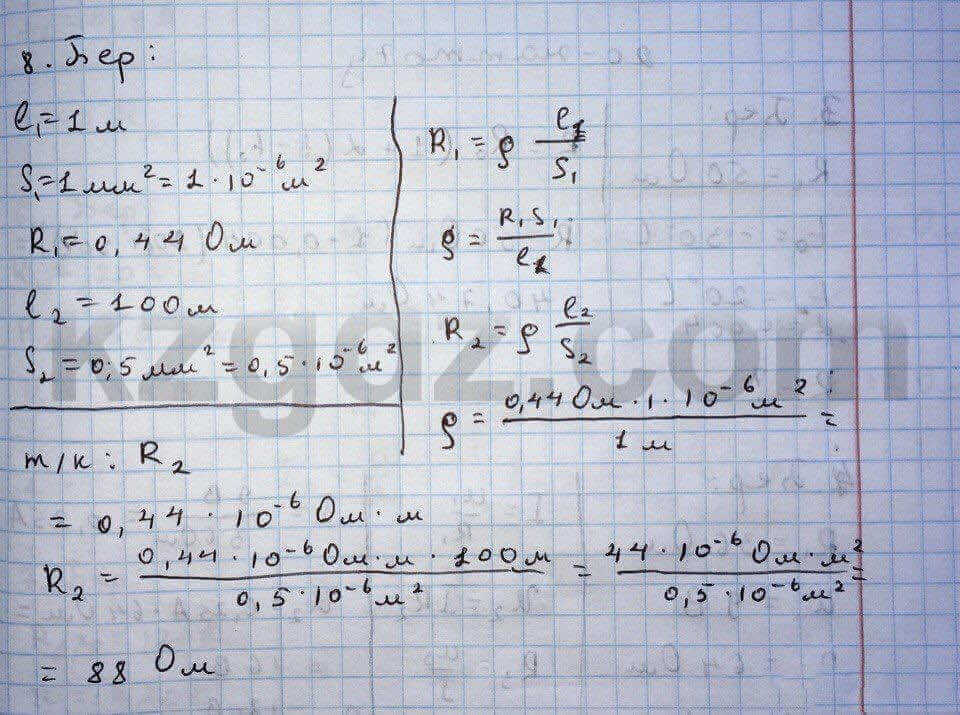 8. Бер:
l₁ = 1 м
S₁ = 1 мм² = 1 · 10⁻⁶ м²
R₁ = 0,44 Ом
l₂ = 100 м
S₂ = 0,5 мм² = 0,5 · 10⁻⁶ м²
т/к: R₂
R₁ = ρ l₁/S₁
ρ = R₁S₁/l₁
R₂ = ρ l₂/S₂
ρ = 0,44 Ом · 1 · 10⁻⁶ м² / 1 м =
= 0,44 · 10⁻⁶ Ом · м
R₂ = 0,44 · 10⁻⁶ Ом · м · 100 м / 0,5 · 10⁻⁶ м² = 44 · 10⁻⁶ Ом · м² / 0,5 · 10⁻⁶ м² =
= 88 Ом
kzgdz.com